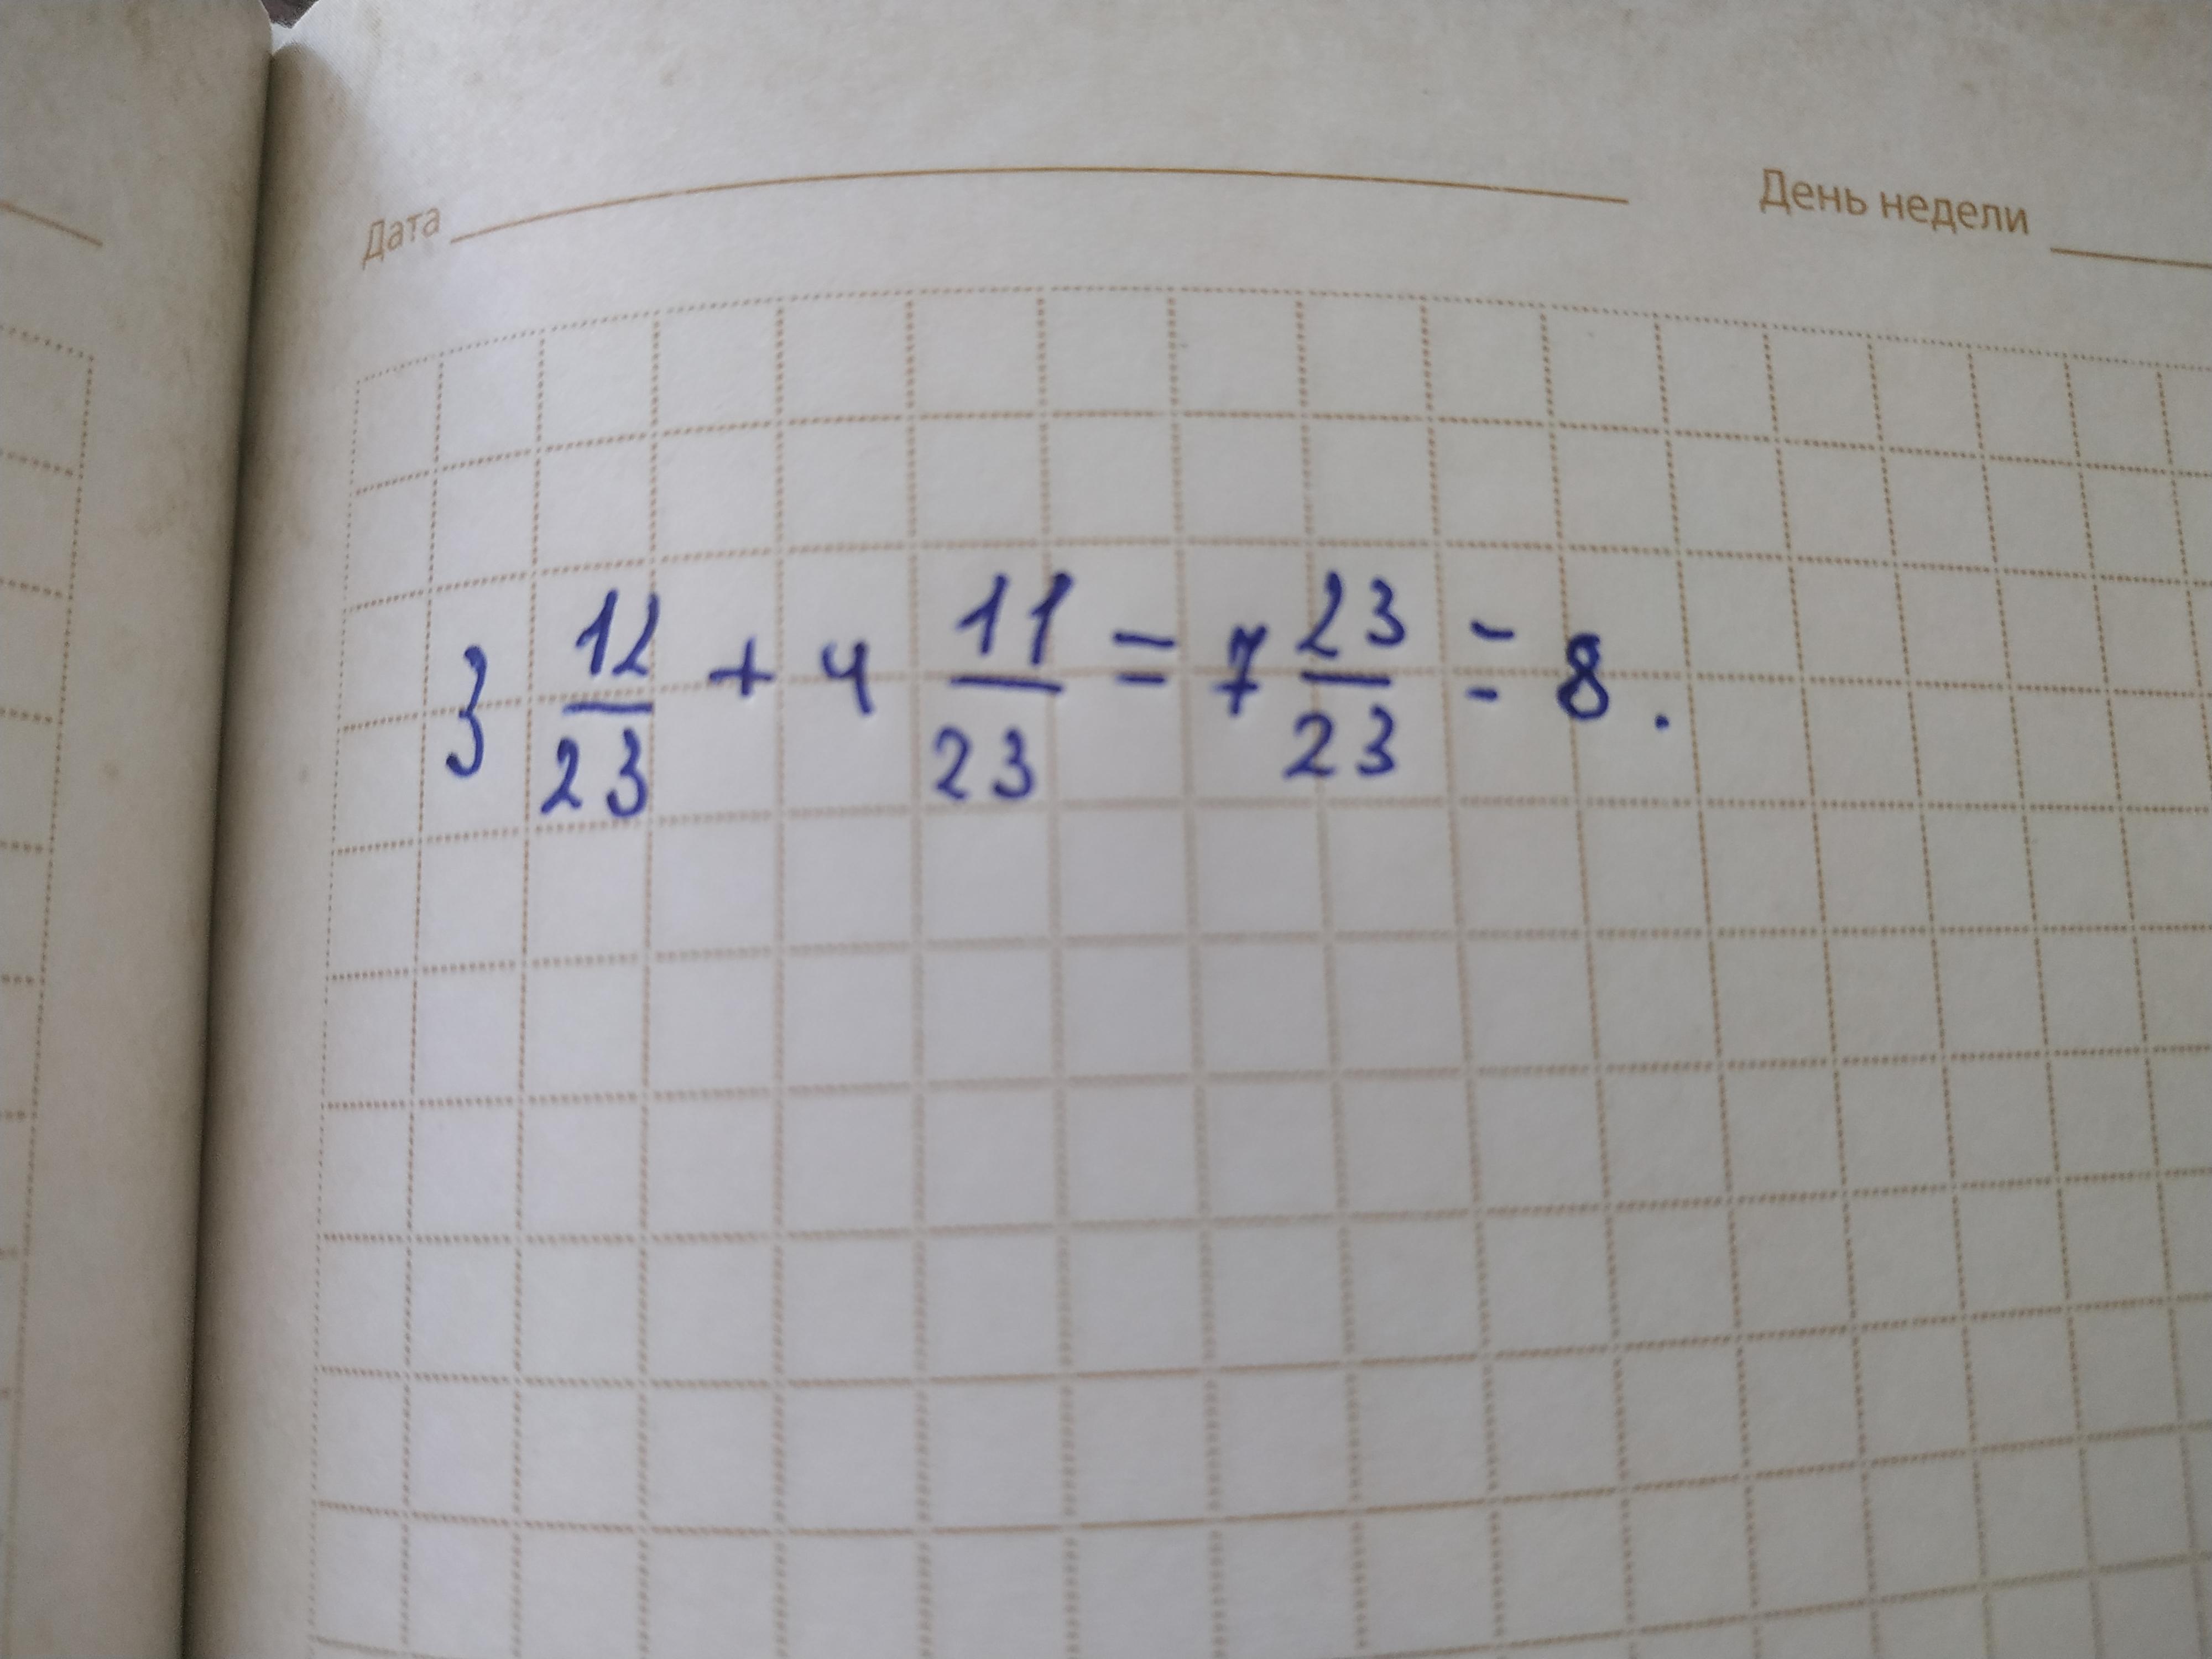 Дата День недели
3 12/23 + 4 11/23 = 7 23/23 = 8.